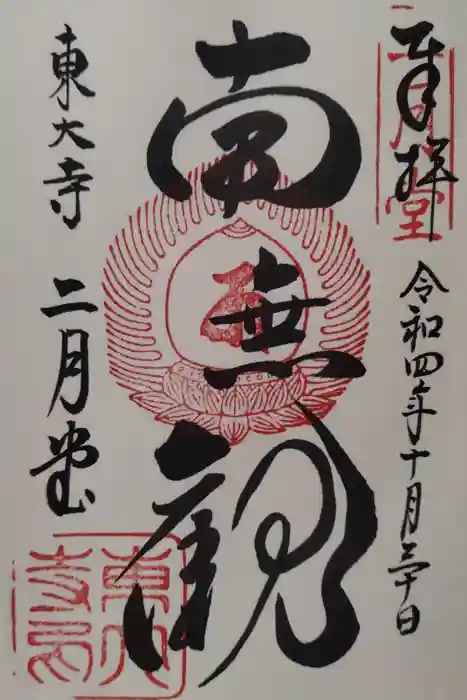 奉拝
二月堂
令和四年十月三十日
南無観
東大寺 二月堂